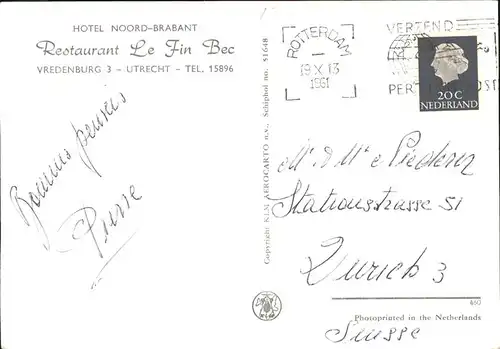 HOTEL NOORD-BRABANT
Restaurant Le Fin Bec
VREDENBURG 3 - UTRECHT - TEL. 15896
Pierre
Copyright KLM AEROCARTO n.v., Schiphol no. 51648
ROTTERDAM
19 X 13
1961
VERZEND
PER
POST
20 C
NEDERLAND
Stationsstrasse 51
Zurich 3
Suisse
460
Photoprinted in the Netherlands